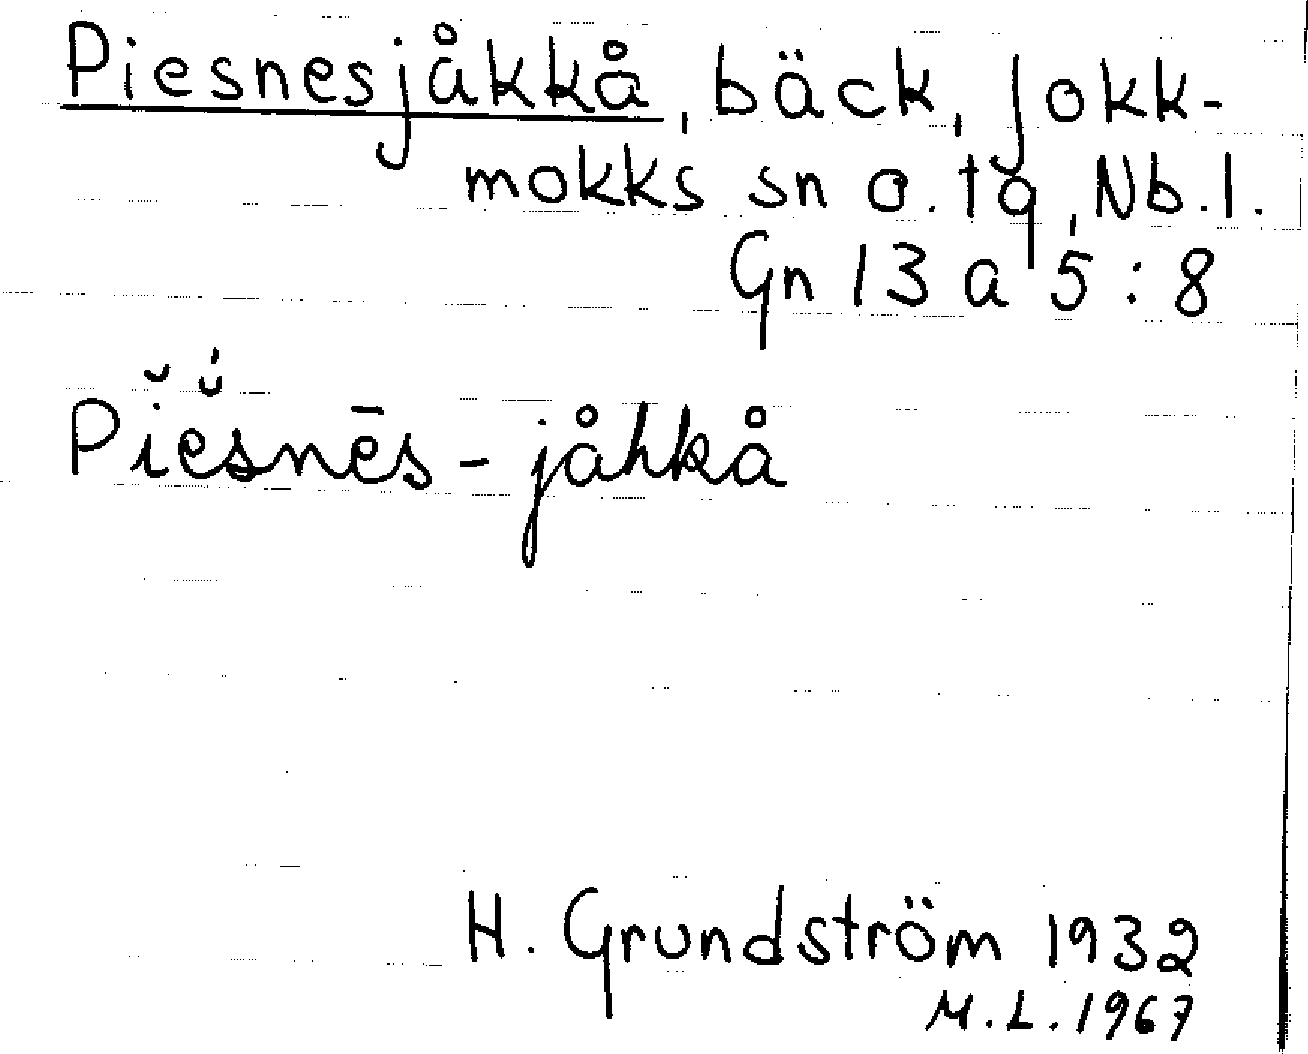 Piesnesjåkkå, bäck, Jokk-
mokks sn o. tg, Nb. l.
Gn 13 a 5 : 8
Pĭĕ́snēs-jåhkå
H. Grundström 1932
M. L. 1967